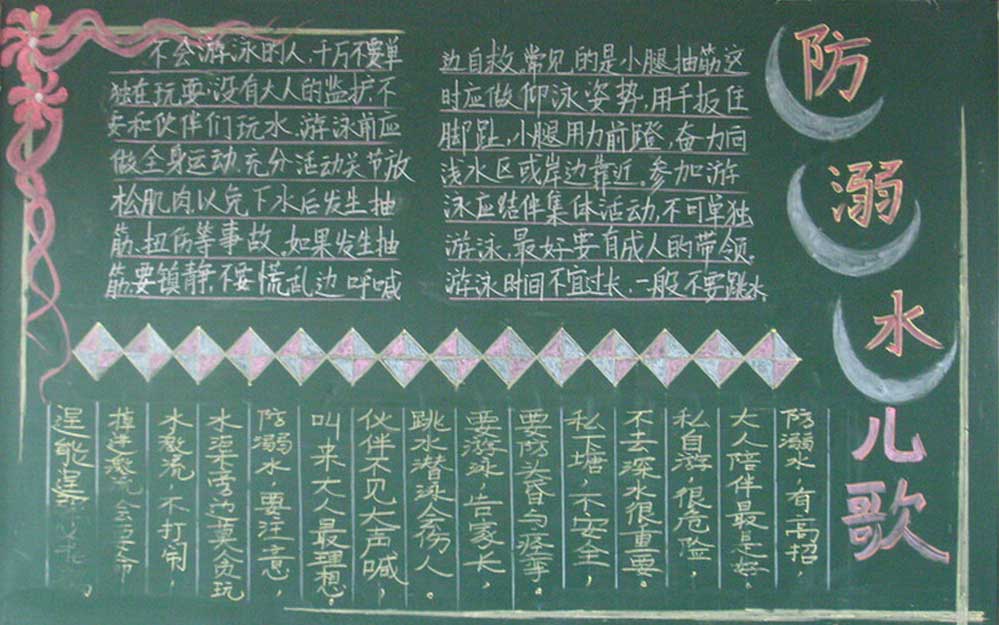 防溺水儿歌
不会游泳的人,千万不要单
独在玩耍.没有大人的监护,不
要和伙伴们玩水。游泳前应
做全身运动.充分活动关节放
松肌肉,以免下水后发生抽
筋、扭伤等事故。如果发生抽
筋要镇静,不要慌乱边呼喊
边自救,常见的是小腿抽筋这
时应做仰泳姿势,用手扳住
脚趾,小腿用力前蹬,奋力向
浅水区或岸边靠近。参加游
泳应结伴集体活动,不可单独
游泳,最好要有成人的带领。
游泳时间不宜过长,一般不要跳水
防溺水,有高招,
大人陪伴最是好。
私自游,很危险,
不去深水很重要。
私下塘,不安全,
要防头昏与
要游泳,告家长,
跳水潜泳会伤人。
伙伴不见大声喊,
叫来大人最理想。
防溺水,要注意,
贪玩
水激流,不打闹,
逞能